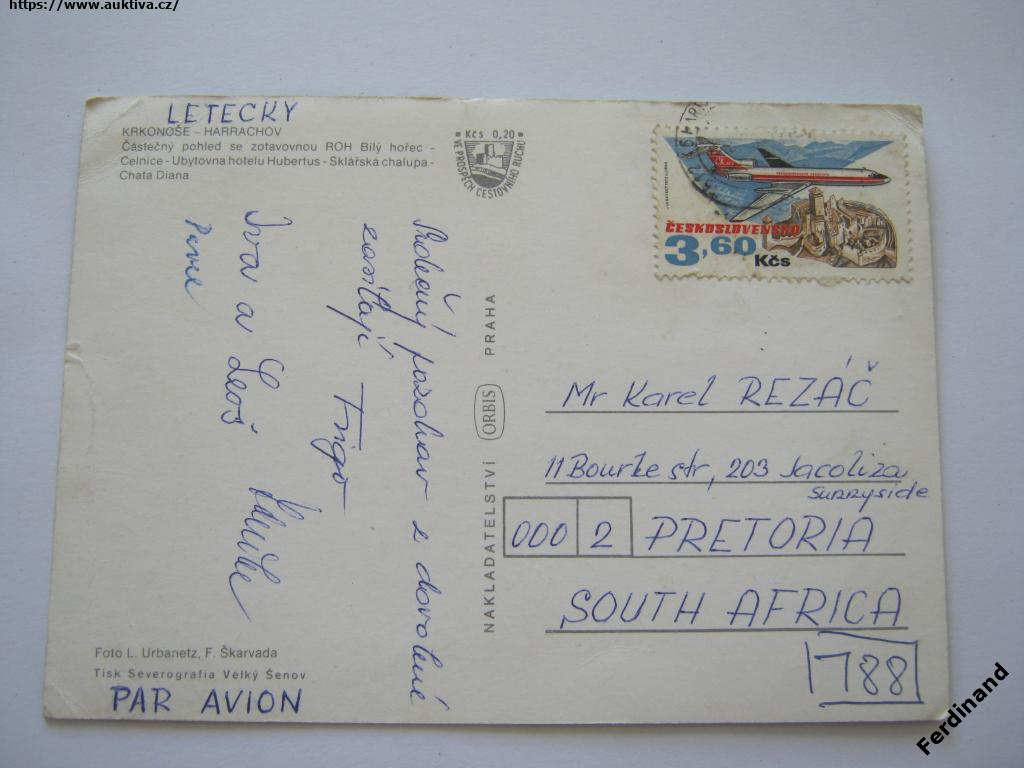 https://www.auktiva.cz/
LETECKY
KRKONOŠE - HARRACHOV
Částečný pohled se zotavovnou ROH Bílý hořec -
Celnice - Ubytovna hotelu Hubertus - Sklářská chalupa -
Chata Diana
Kčs 0,20
VE PROSPĚCH CESTOVNÍHO RUCHU
ČESKOSLOVENSKO
3,60 Kčs
Srdečný pozdrav z dovolené
zasílají
Iva a Leoš
NAKLADATELSTVÍ ORBIS PRAHA
Mr Karel REZÁČ
11 Bourke str, 203 Jacoliza
Sunnyside
0002 PRETORIA
SOUTH AFRICA
788
Foto L. Urbanetz, F. Škarvada
Tisk Severografia Velký Šenov
PAR AVION
Ferdinand